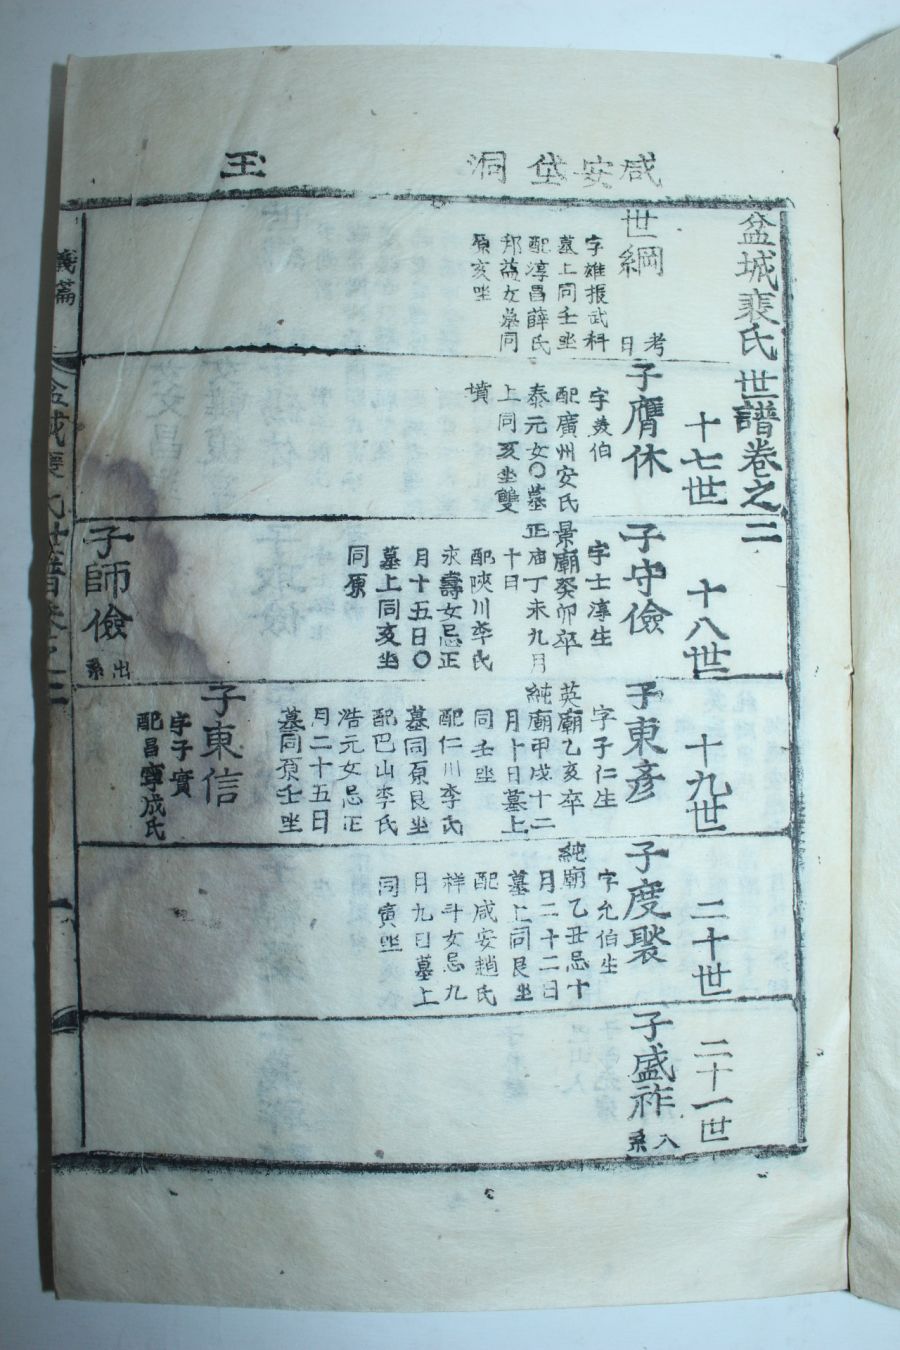 咸安垈洞
玉
盆城裵氏世譜卷之二
十七世
十八世
十九世
二十世
二十一世
世綱
考
日
字雄振武科
墓上同壬坐
配淳昌薛氏
邦益女墓同
原亥坐
子膺休
字羙伯
配廣州安氏
泰元女〇墓
上同亥坐雙
墳
子守儉
字士淳生
景廟癸卯卒
正庙丁未九月
十日
配陜川李氏
永壽女忌正
月十五日〇
墓上同亥坐
同原
子師儉
出系
子東彥
字子仁生
英廟乙亥卒
純廟甲戌十二
月卜日墓上
同壬坐
配仁川李氏
墓同原艮坐
配巴山李氏
浩元女忌正
月二十五日
墓同原壬坐
子東信
字子實
配昌寧成氏
子度褧
字允伯生
純廟乙丑忌十
月二十二日
墓上同艮坐
配咸安趙氏
祥斗女忌九
月九日墓上
同寅坐
子盛祚
入系
義篇
盆城裵氏世譜卷之二
一